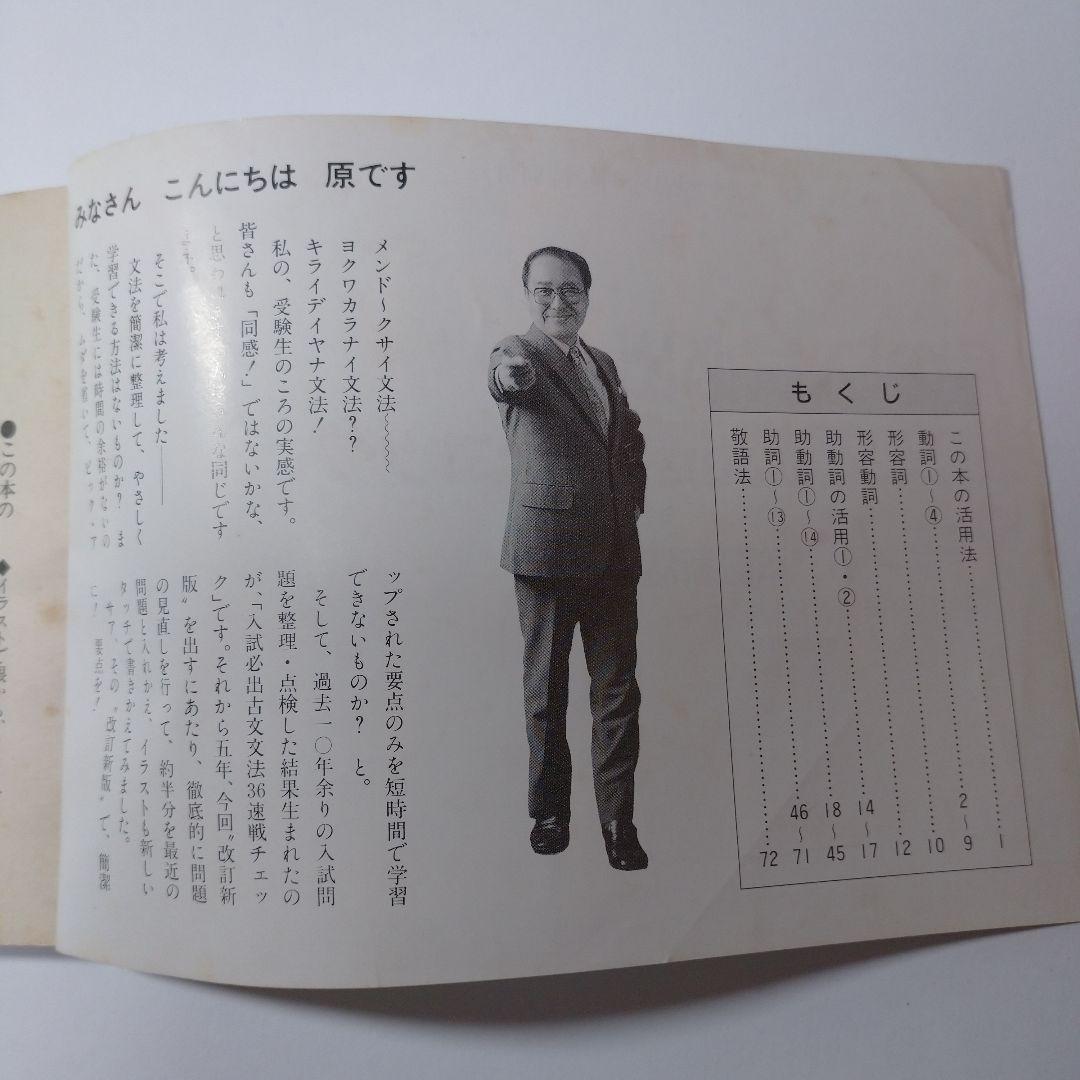 みなさん こんにちは 原です
メンド〜クサイ文法〜〜〜
ヨクワカラナイ文法??
キライデイヤナ文法!
私の、受験生のころの実感です。
皆さんも「同感!」ではないかな、
と思わ
な同じです
そこで私は考えました――
文法を簡潔に整理して、やさしく
学習できる方法はないものか? ま
た、受験生には時間の余裕がないの
だから、ムダを省いて、ピック・ア
ップされた要点のみを短時間で学習
できないものか? と。
そして、過去一〇年余りの入試問
題を整理・点検した結果生まれたの
が、「入試必出古文文法36速戦チェッ
ク」です。それから五年、今回〝改訂新
版〟を出すにあたり、徹底的に問題
の見直しを行って、約半分を最近の
問題と入れかえ、イラストも新しい
タッチで書きかえてみました。
サア、その〝改訂新版〟で、簡潔
に! 要点を!
もくじ
この本の活用法……1
動詞①〜④……2〜9
形容詞……10
形容動詞……12
助動詞の活用①・②……14〜17
助動詞①〜⑭……18〜45
助詞①〜⑬……46〜71
敬語法……72
●この本の
◆イラスト